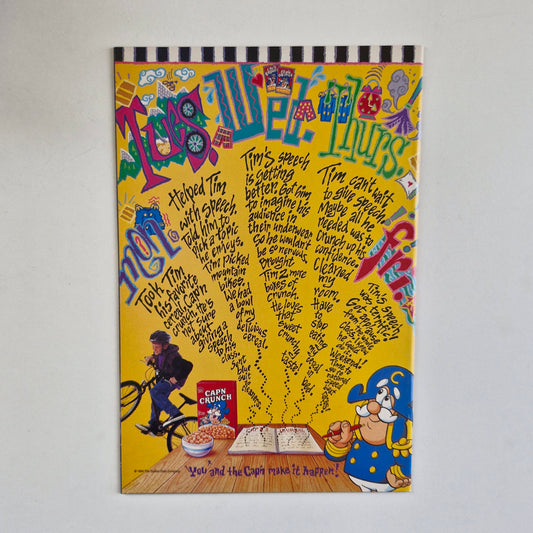 Mon.
Took Tim
his favorite
cereal, Cap'n
Crunch. He's
not sure
about
giving a
speech
to his
class.
Tues.
Helped Tim
with speech.
Told him to
pick a topic
he enjoys.
Tim picked
mountain
bikes.
We had
a bowl
of my
delicious
cereal.
Wed.
Tim's speech
is getting
better. Got him
to imagine his
audience in
their underwear
so he wouldn't
be so nervous.
Brought
Tim 2 more
boxes of
Crunch.
He loves
that
sweet
crunchy
taste!
Thurs.
Tim can't wait
to give speech.
Maybe all he
needed was to
Crunch up his
confidence.
Cleaned
my
room.
Have
to
stop
eating
my
cereal
in
bed.
Fri.
Tim's speech
was terrific!
Got applause
from the whole
class.
Weekend!
CAP'N
CRUNCH
You and the Cap'n make it happen!